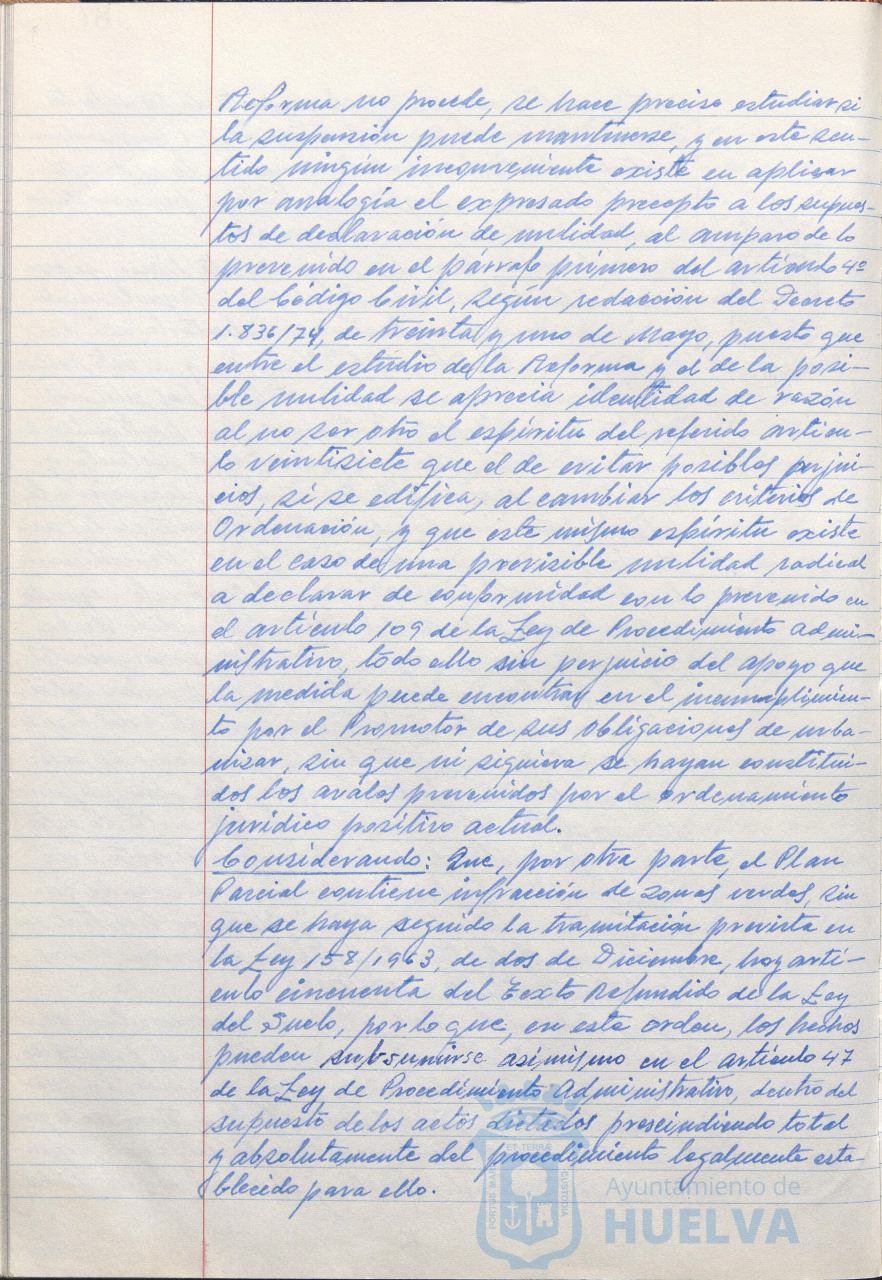 Reforma no procede, se hace preciso estudiar si
la suspensión puede mantenerse, y en este sen-
tido ningún inconveniente existe en aplicar
por analogía el expresado precepto a los supues-
tos de declaración de nulidad, al amparo de lo
prevenido en el párrafo primero del artículo 4º
del Código Civil, según redacción del Decreto
1.836/74, de treinta y uno de Mayo, puesto que
entre el estudio de la Reforma y el de la posi-
ble nulidad se aprecia identidad de razón
al no ser otro el espíritu del referido artícu-
lo veintisiete que el de evitar posibles perjui-
cios, si se edifica, al cambiar los criterios de
Ordenación, y que este mismo espíritu existe
en el caso de una previsible nulidad radical
a declarar de conformidad con lo prevenido en
el artículo 109 de la Ley de Procedimiento Admi-
nistrativo, todo ello sin perjuicio del apoyo que
la medida puede encontrar en el incumplimien-
to por el Promotor de sus obligaciones de urba-
nizar, sin que ni siquiera se hayan constitui-
dos los avales prevenidos por el ordenamiento
jurídico positivo actual.
Considerando: Que, por otra parte, el Plan
Parcial contiene infracción de zonas verdes, sin
que se haya seguido la tramitación prevista en
la Ley 158/1963, de dos de Diciembre, hoy artí-
culo cincuenta del Texto Refundido de la Ley
del Suelo, por lo que, en este orden, los hechos
pueden subsumirse asimismo en el artículo 47
de la Ley de Procedimiento Administrativo, dentro del
supuesto de los actos dictados prescindiendo total
y absolutamente del procedimiento legalmente esta-
blecido para ello.
PORTUS MA
ET TERRAE
CUSTODIA
Ayuntamiento de
HUELVA